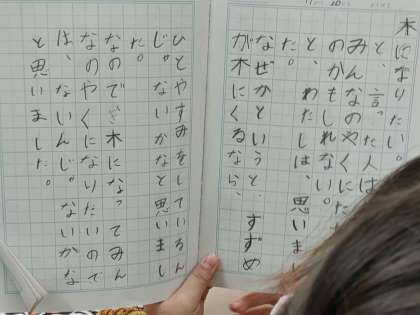 木になりたい。
と、言った人は
みんなのやくにた
のかもしれない。
と、わたしは、思いまし
た。
なぜかというと、すずめ
が木にくるなら、
ひとやすみをしているん
じゃないかなと思いまし
た。
なので木になってみん
なのやくになりたいので
は、ないんじゃないかな
と思いました。